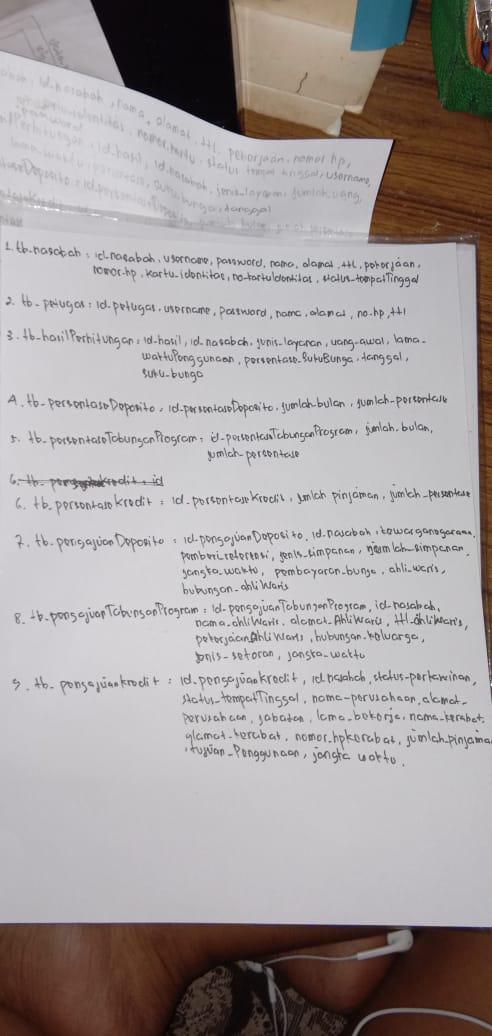 nasabah, nama, alamat, ttl, pekerjaan, nomor hp,
status tempat tinggal, username,
Perhitungan, id-hasil, id nasabah, jenis-layanan, jumlah uang,
suku bunga, tanggal
1. tb-nasabah : id-nasabah, username, password, nama, alamat, ttl, pekerjaan,
nomor-hp, kartu-identitas, no-kartuIdentitas, status-tempatTinggal
2. tb-petugas : id-petugas, username, password, nama, alamat, no-hp, ttl
3. tb-hasilPerhitungan : id-hasil, id-nasabah, jenis-layanan, uang-awal, lama-
waktuPenggunaan, persentase-SukuBunga, tanggal,
suku-bunga
4. tb-persentaseDeposito : id-persentaseDeposito, jumlah-bulan, jumlah-persentase
5. tb-persentaseTabunganProgram : id-persentaseTabunganProgram, jumlah-bulan,
jumlah-persentase
6. tb. kredit : id
6. tb-persentase kredit : id-persentase kredit, jumlah pinjaman, jumlah-persentase
7. tb-pengajuanDeposito : id-pengajuanDeposito, id-nasabah, kewarganegaraan,
pemberi-referensi, jenis-simpanan, jumlah-simpanan,
jangka-waktu, pembayaran-bunga, ahli-waris,
hubungan-ahliWaris
8. tb-pengajuanTabunganProgram : id-pengajuanTabunganProgram, id-nasabah,
nama-ahliWaris, alamat-AhliWaris, ttl-ahliWaris,
pekerjaanAhliWaris, hubungan-keluarga,
jenis-setoran, jangka-waktu
9. tb-pengajuankredit : id-pengajuankredit, id nasabah, status-perkawinan,
status-tempatTinggal, nama-perusahaan, alamat-
perusahaan, jabatan, lama-bekerja, nama-kerabat,
alamat-kerabat, nomor-hpkerabat, jumlah-pinjama
, tujuan-Penggunaan, jangka waktu.